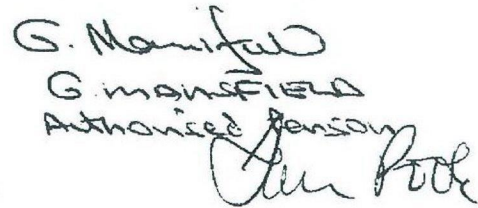 G. Mansfield
G. MANSFIELD
Authorised Person